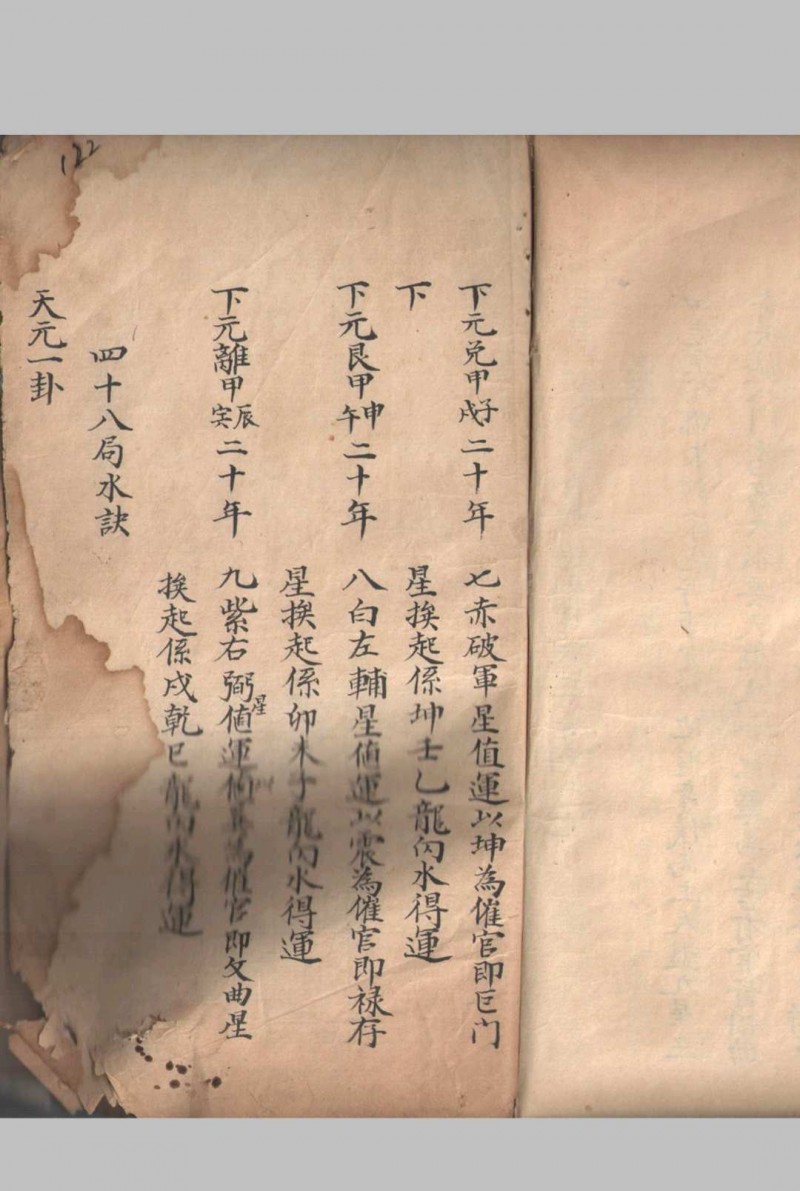 下元兌甲子戌二十年 七赤破軍星值運以坤為催官即巨门
下 星挨起係坤壬乙龍內水得運
下元艮甲申午二十年 八白左輔星值運以震為催官即禄存
星挨起係卯未子龍內水得運
下元離甲辰寅二十年 九紫右弼星值運為催官即文曲星
挨起係戌乾巳龍內水得運
四十八局水訣
天元一卦
122